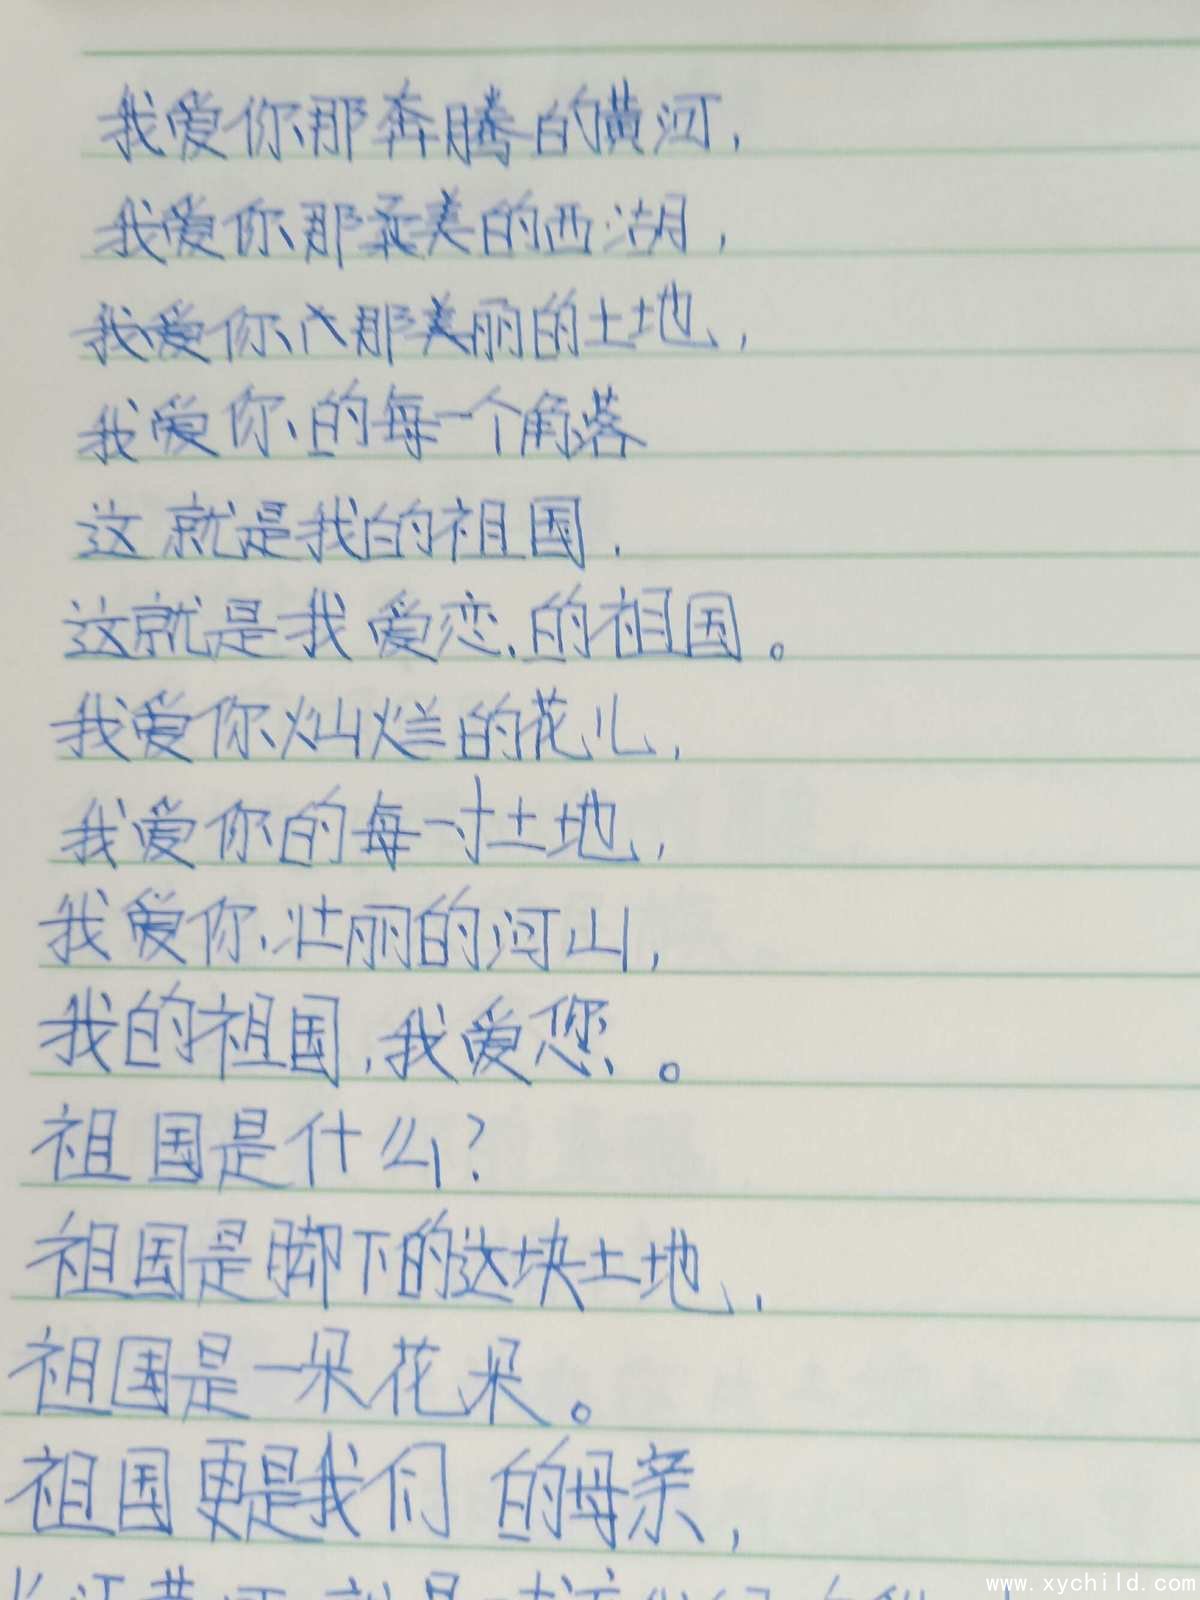 我爱你那奔腾的黄河，
我爱你那柔美的西湖，
我爱你那美丽的土地，
我爱你的每一个角落
这就是我的祖国，
这就是我爱恋的祖国。
我爱你灿烂的花儿，
我爱你的每一寸土地，
我爱你壮丽的河山，
我的祖国，我爱您。
祖国是什么？
祖国是脚下的这块土地，
祖国是一朵花朵。
祖国更是我们的母亲，
www.xychild.com